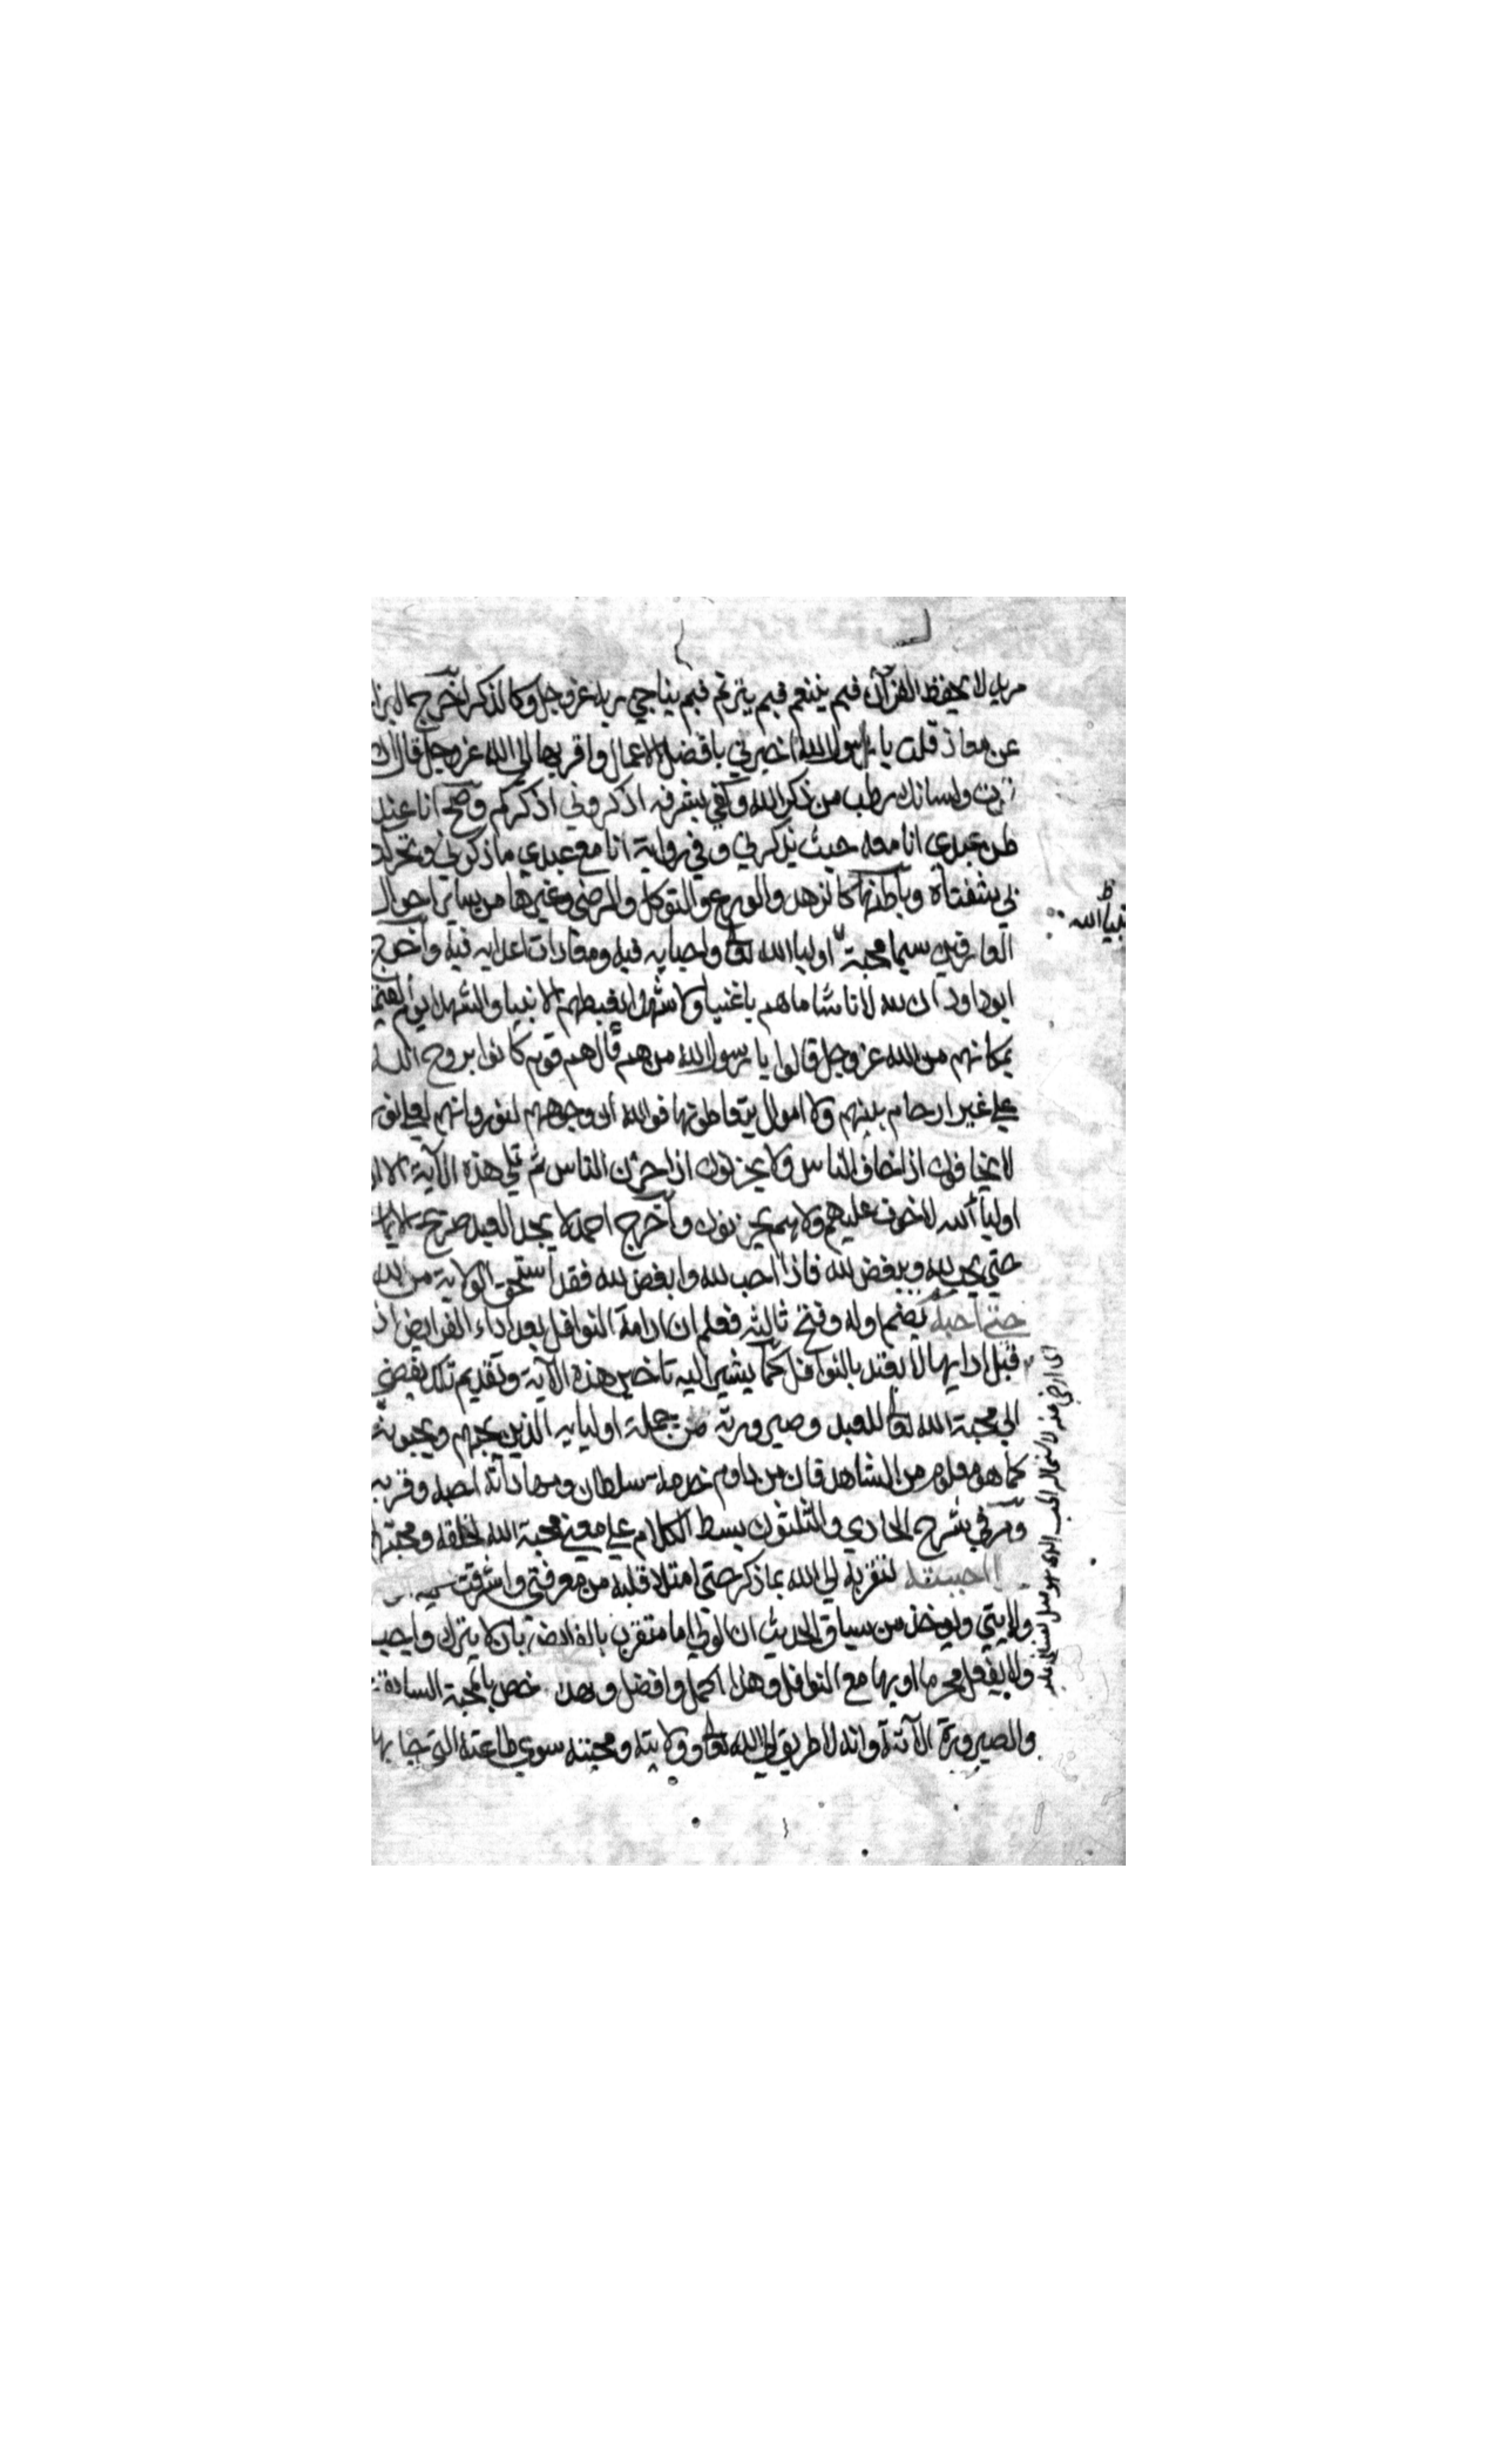 مريد لا يحفظ القرآن فبم يتنعم فبم يترنم فبم يناجي ربه عز وجل وكالذكر اخرج البزار
عن معاذ قلت يا رسول الله اخبرني بافضل الاعمال واقربها الى الله عز وجل قال ان
تموت ولسانك رطب من ذكر الله وكفى بشرفه اذكروني اذكركم وصح انا عند
ظن عبدي انا معه حيث يذكرني وفي رواية انا مع عبدي ما ذكرني وتحركت
بي شفتاه وباطنها كالزهد والورع والتوكل والرضى وغيرها من ساير احوال
العارفين سيما محبة اوليا الله تعالى واحبايه فيه ومعادات اعدايه فيه واخرج
ابو داود ان لله لاناسا ما هم بانبيا ولا شهدا يغبطهم الانبيا والشهدا يوم القيمة
بمكانهم من الله عز وجل قالوا يا رسول الله من هم قال هم قوم تحابوا بروح الله
على غير ارحام بينهم ولا اموال يتعاطونها فوالله ان وجوههم لنور وانهم لعلى نور
لا يخافون اذا خاف الناس ولا يحزنون اذا حزن الناس ثم تلى هذه الآية الا ان
اولياء الله لا خوف عليهم ولا هم يحزنون واخرج احمد لا يجد العبد صريح الايمان
حتى يحب لله ويبغض لله فاذا احب لله وابغض لله فقد استحق الولاية من الله
حتى احبه بضم اوله وفتح ثالثه فعلم ان ادامة النوافل بعد اداء الفرايض اذ
قبل ادايها لا يعتد بالنوافل كما يشير اليه تاخير هذه الآية وتقديم تلك يفضي
الى محبة الله تعالى للعبد وصيرورته من جملة اوليايه الذين يحبهم ويحبونه
كما هو معلوم من الشاهد فان من داوم خدمة سلطان ومهاداته احبه وقربه
ومر في شرح الحادي والثلثون بسط الكلام على معنى محبة الله لخلقه ومحبتهم
احببته لتقربه الى الله بما ذكر حتى امتلا قلبه من معرفتي واشرقت
ولايتي ويوخذ من سياق الحديث ان الولي اما متقرب بالفرايض بان لا يترك واجبا
ولا يفعل محرما او بها مع النوافل وهذا اكمل وافضل وهذا خص بالمحبة السابقة
والصيرورة الآتية وانه لا طريق الى الله تعالى وولايته ومحبته سوى طاعته التي جا بها
انبيا الله